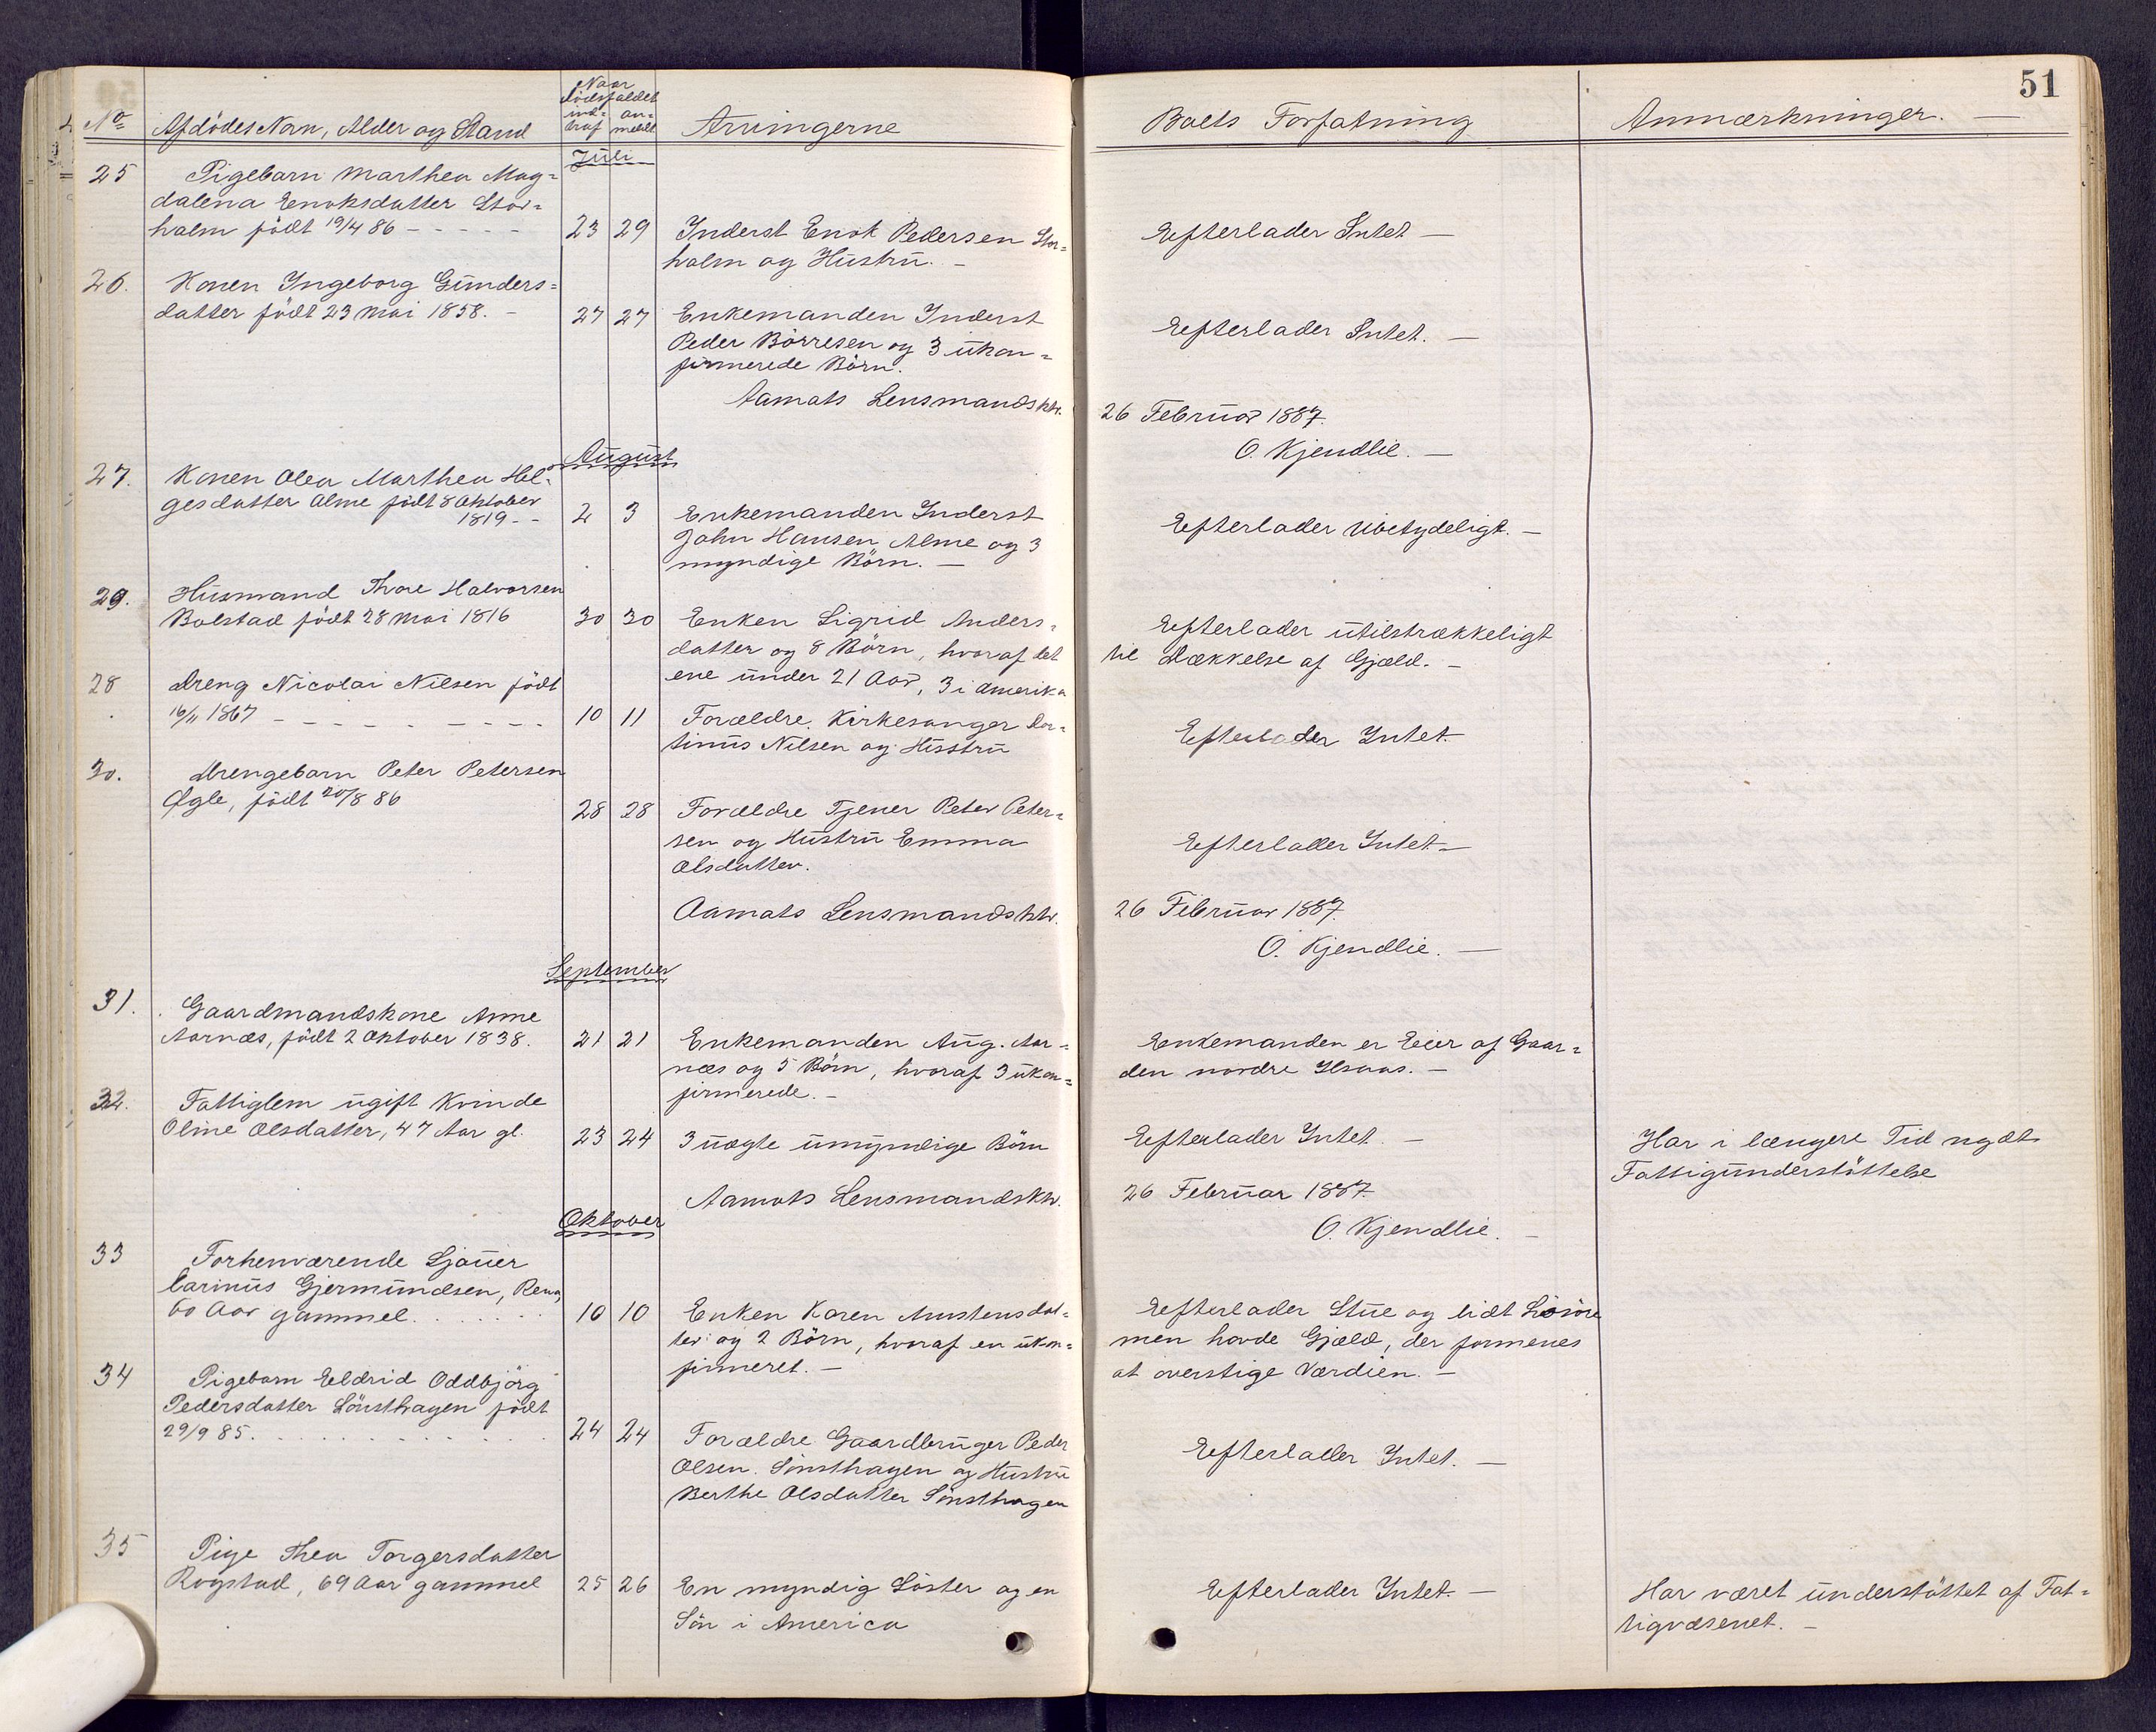 51
Naar
dödsfaldet
No Afdödes Navn, Alder og Stand ind- an- Arvingerne Boets Forfatning Anmærkninger. —
traf meldt
Juli
25 Pigebarn Marthea Mag=
dalena Enoksdatter Stor=
holm födt 19/4 86 - - - - - 23 29 Inderst Enok Pedersen Stor= Efterlader Intet —
holm og Hustru. -
26. Konen Ingeborg Gunders=
datter födt 23 Mai 1858. - 27 27 Enkemanden Inderst Efterlader Intet. —
Peder Börresen og 3 ukon=
firmerede Börn.
Aamots Lensmandsktr. 26 Februar 1887.
O. Kjendlie. —
August
27. Konen Olea Marthea Hel=
gesdatter Alme födt 8 Oktober
1819 - - 2 3 Enkemanden Inderst Efterlader Ubetydeligt. —
John Hansen Alme og 3
myndige Börn. —
29. Husmand Thore Halvorsen
Bolstad födt 28 Mai 1816 30 30 Enken Sigrid Anders= Efterlader utilstrækkeligt
datter og 8 Börn, hvoraf det til Dækkelse af Gjæld. -
ene under 21 Aar, 3 i Amerika
28 Dreng Nicolai Nilsen födt
16/11 1867 - - - - - - - - 10 11 Forældre Kirkesanger Mar= Efterlader Intet.
tinus Nilsen og Hustru
30. Drengebarn Peter Petersen
Øgle, födt 20/8 86 28 28 Forældre Tjener Peter Peter= Efterlader Intet —
sen og Hustru Emma
Olsdatter.
Aamots Lensmandsktr. 26 Februar 1887.
O. Kjendlie. —
September
31. Gaardmandskone Anne
Aarnæs, födt 2 Oktober 1838. 21 21 Enkemanden Aug. Aar= Enkemanden er Eier af Gaar=
næs og 5 Börn, hvoraf 3 ukon= den nordre Ilsaas. —
firmerede. -
32. Fattiglem ugift Kvinde
Oline Olsdatter, 47 Aar gl. 23 24 3 uægte umyndige Börn Efterlader Intet. — Har i længere Tid nydt
Fattigunderstöttelse
Aamots Lensmandsktr. 26 Februar 1887.
O. Kjendlie. -
Oktober
33 Forhenværende Sjauer
Carinus Gjermundsen, Rena,
60 Aar gammel. . . . . . . 10 10 Enken Karen Amstensdat= Efterlader Stue og lidt Lösöre
ter og 2 Börn, hvoraf en ukon= men havde Gjæld, der formenes
firmeret. — at overstige Værdien. —
34 Pigebarn Eldrid Oddbjörg
Pedersdatter Sönsthagen födt
29/9 85. . . . . . . . . . 24 24 Forældre Gaardbruger Peder Efterlader Intet. —
Olsen Sönsthagen og Hustru
Berthe Olsdatter Sönsthagen
35 Pige Thea Torgersdatter
Rogstad, 69 Aar gammel 25 26 En myndig Söster og en Efterlader Intet. — Har været understöttet af Fat=
Sön i America tigvæsenet. —